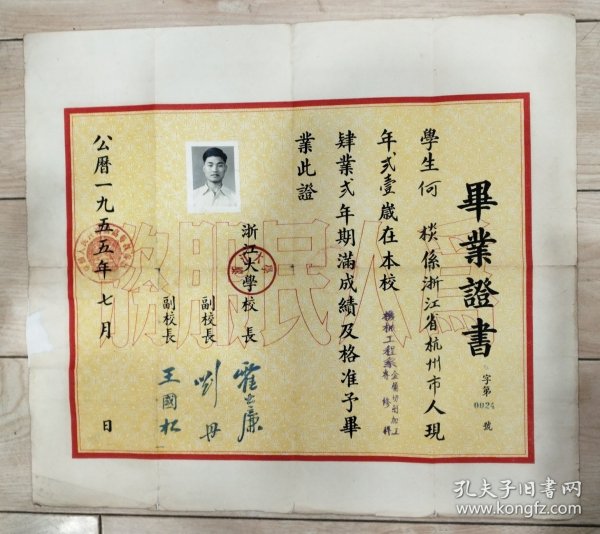 畢業證書
字第
0024
號
學生何 棪係浙江省杭州市人現
年弍壹歲在本校
機械工程系
金屬切削加工
專修科
肄業弍年期滿成績及格准予畢
業此證
浙江大學校長
霍士廉
副校長
劉丹
副校長
王國松
公曆一九五五年七月 日
為人民服務
孔夫子旧书网